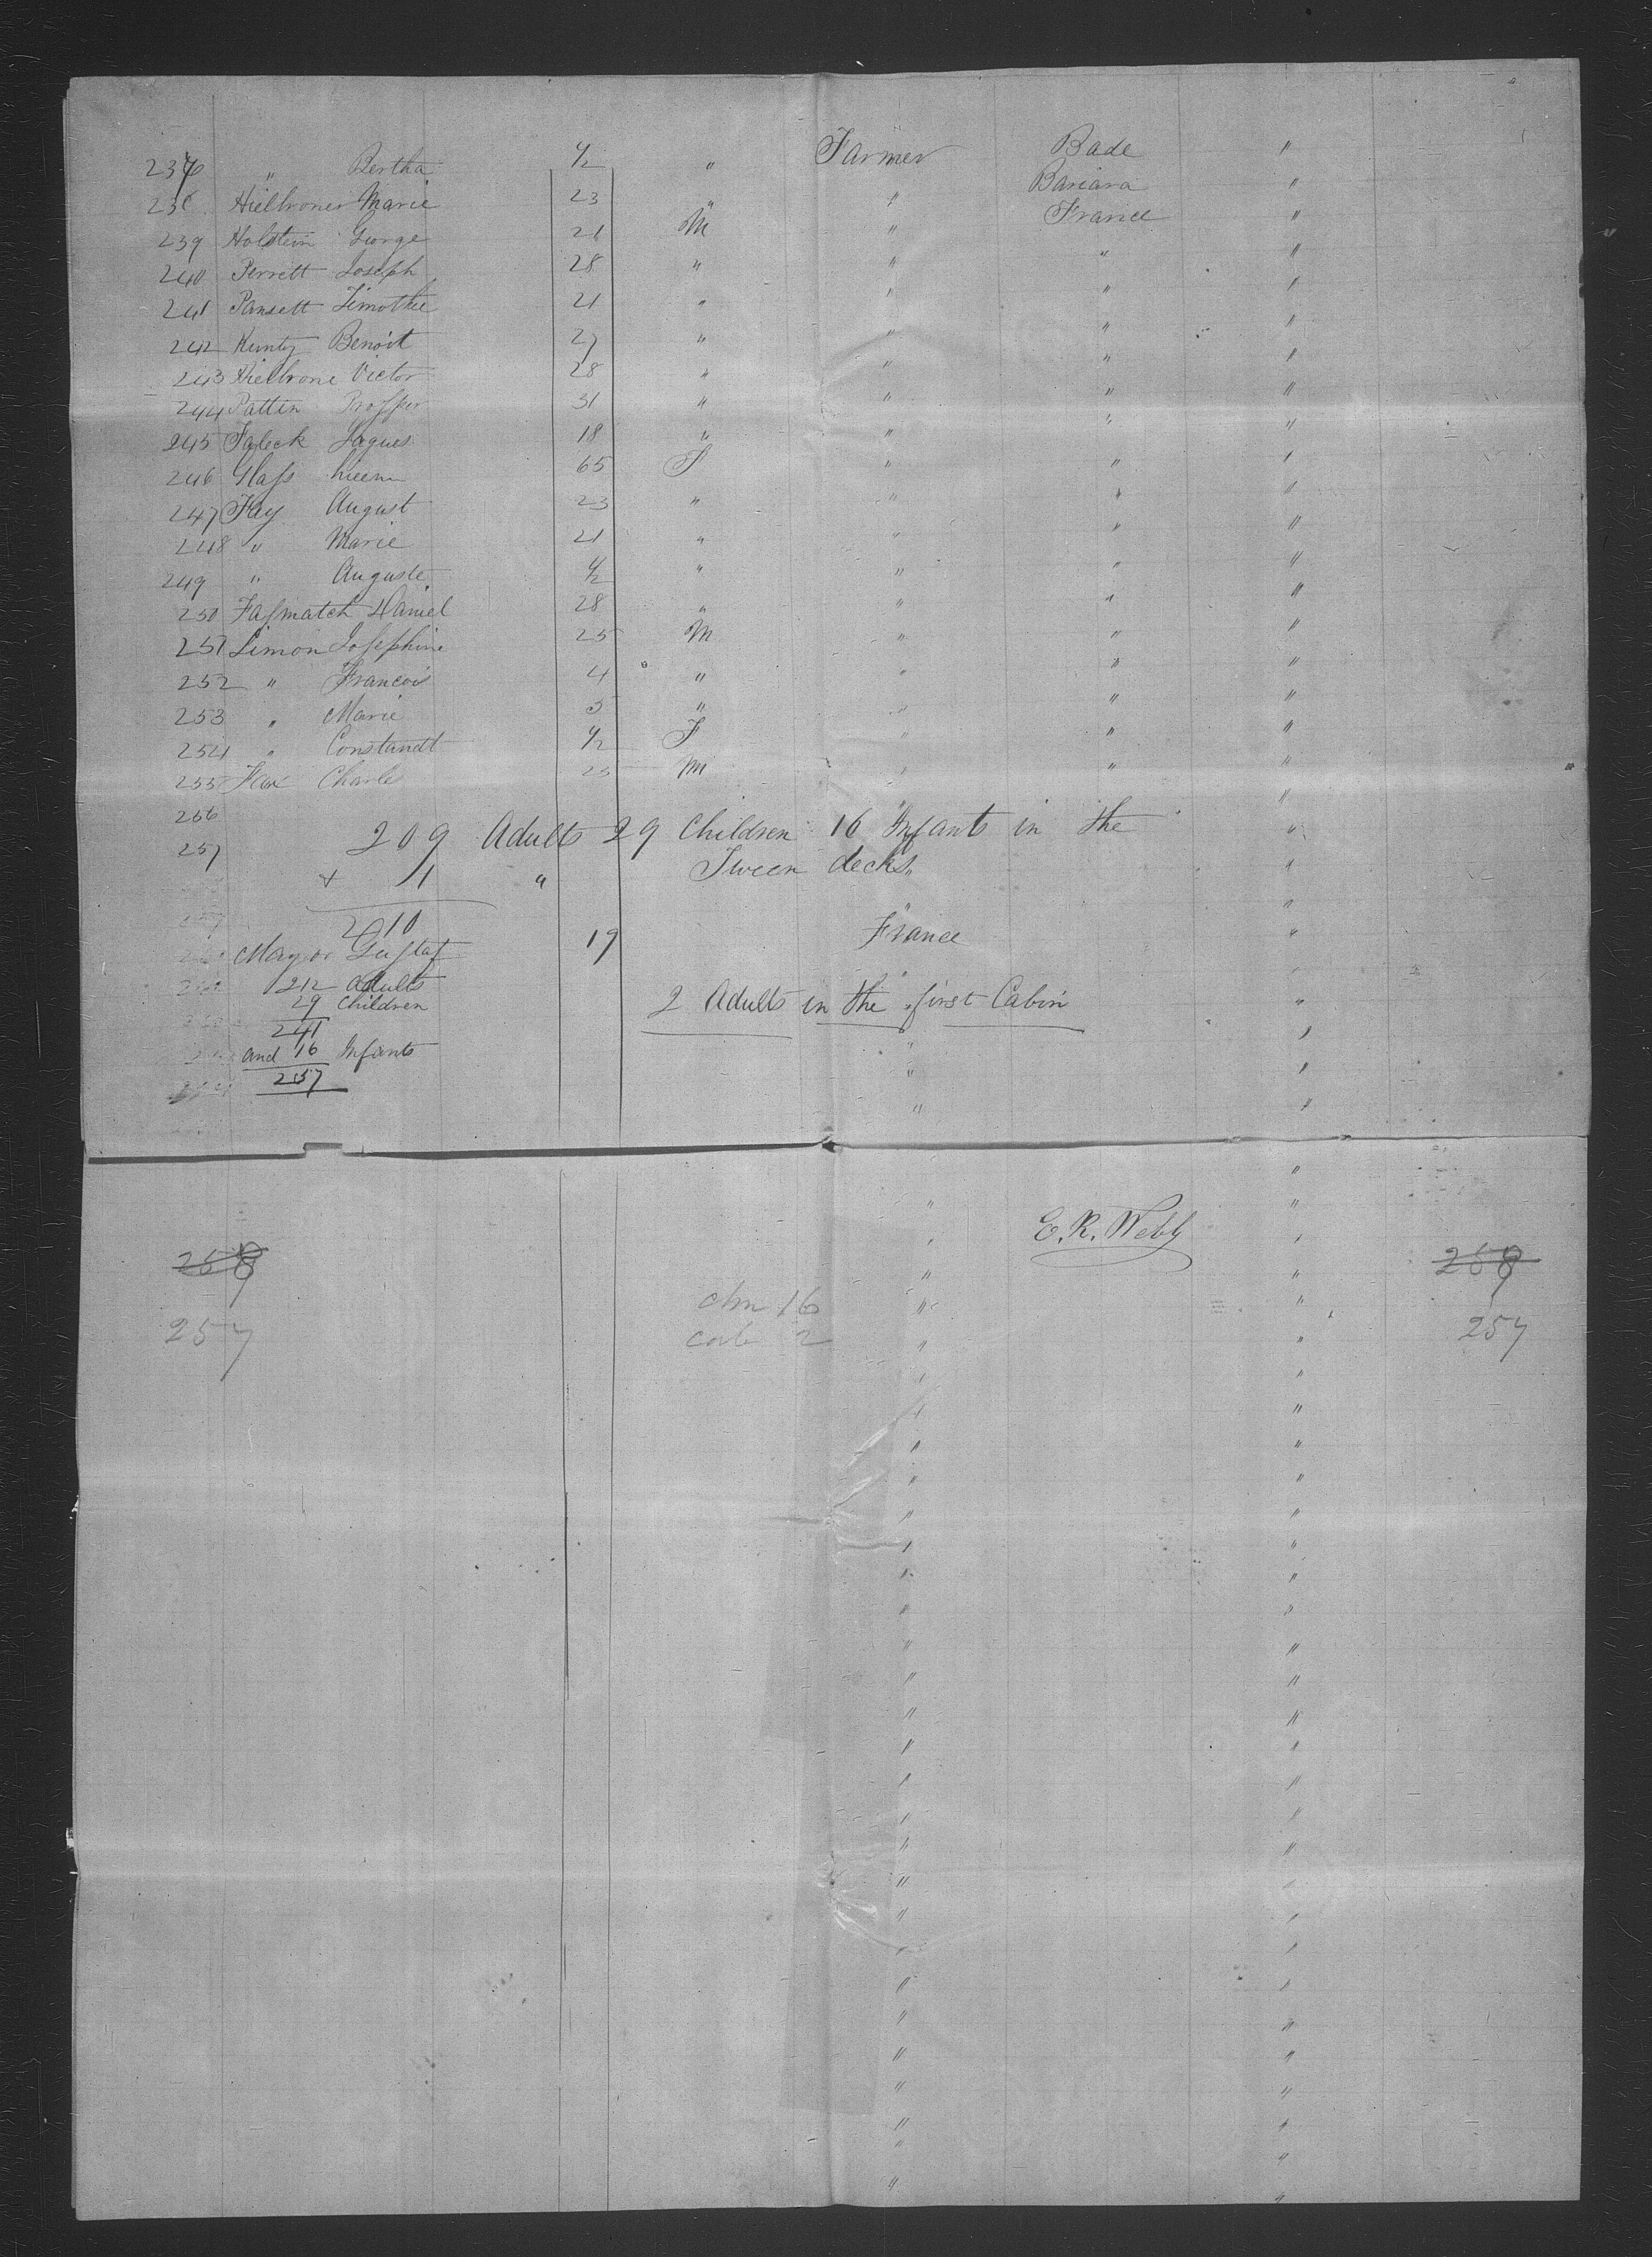 237 " Bertha 1/2 " Farmer Bade "
238 Hielbroner Marie 23 " " Baviara "
239 Holstein George 21 M " France "
240 Perrett Joseph 28 " " " "
241 Pansett Timothee 21 " " " "
242 Kuntz Benoit 27 " " " "
243 Hielbrone Victor 28 " " " "
244 Pattin Prosper 31 " " " "
245 Faleck Jaques 18 " " " "
246 Glass 65 F " " "
247 Fay August 23 " " " "
248 " Marie 21 " " " "
249 " Auguste 1/2 " " " "
250 Fassmatch Daniel 28 " " " "
251 Simon Josephine 25 M " " "
252 " Francois 4 " " " "
253 " Marie 3 " " " "
254 " Constandt 1/2 F " " "
255 Charles 25 M " " "
256
257 209 Adults 29 Children 16 Infants in the
+ 1 " Tween decks
210
Mayor Gustaf 19 France
212 Adults
29 Children 2 Adults in the first Cabin
241
and 16 Infants
257
E. R. Webb
268 268
16
257 2 257